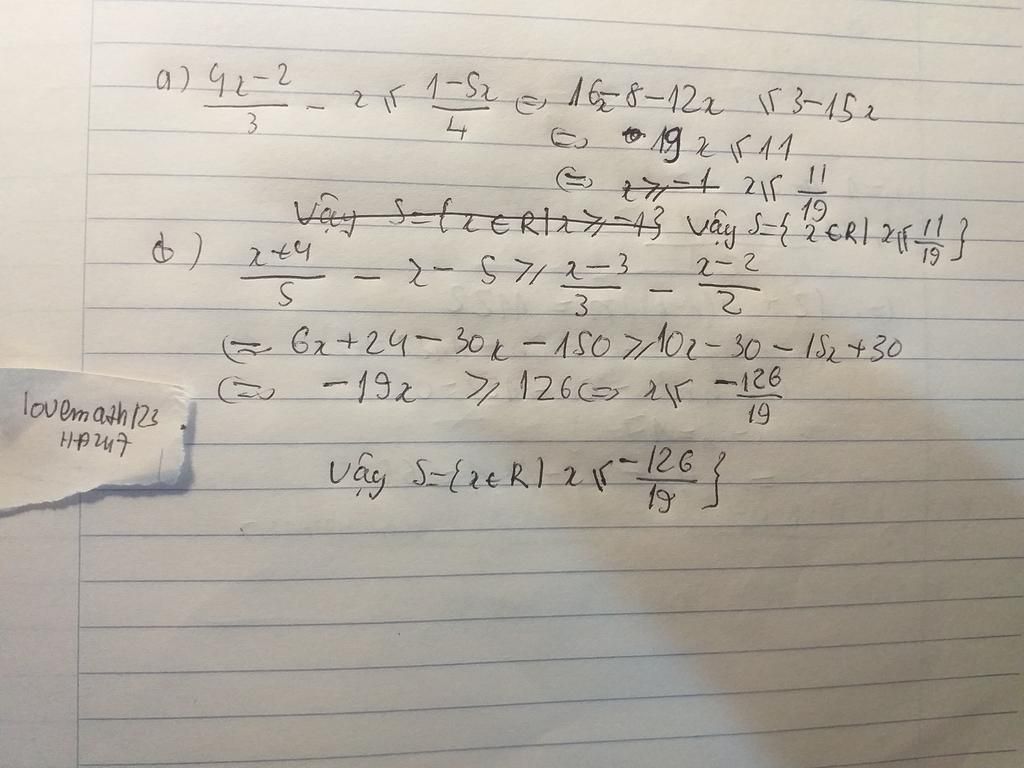 a) \frac{4x-2}{3} - x ≤ \frac{1-5x}{4} ⇔ 16x-8-12x ≤ 3-15x
⇔ 19x ≤ 11
⇔ x ≥ -1 x ≤ \frac{11}{19}
Vậy S={x∈R | x ≥ -1} Vậy S={x∈R | x ≤ \frac{11}{19}}
b) \frac{x+4}{5} - x - 5 ≥ \frac{x-3}{3} - \frac{x-2}{2}
⇔ 6x+24-30x-150 ≥ 10x-30-15x+30
⇔ -19x ≥ 126 ⇔ x ≤ \frac{-126}{19}
Vậy S={x∈R | x ≤ \frac{-126}{19}}
lovemath123
HP247